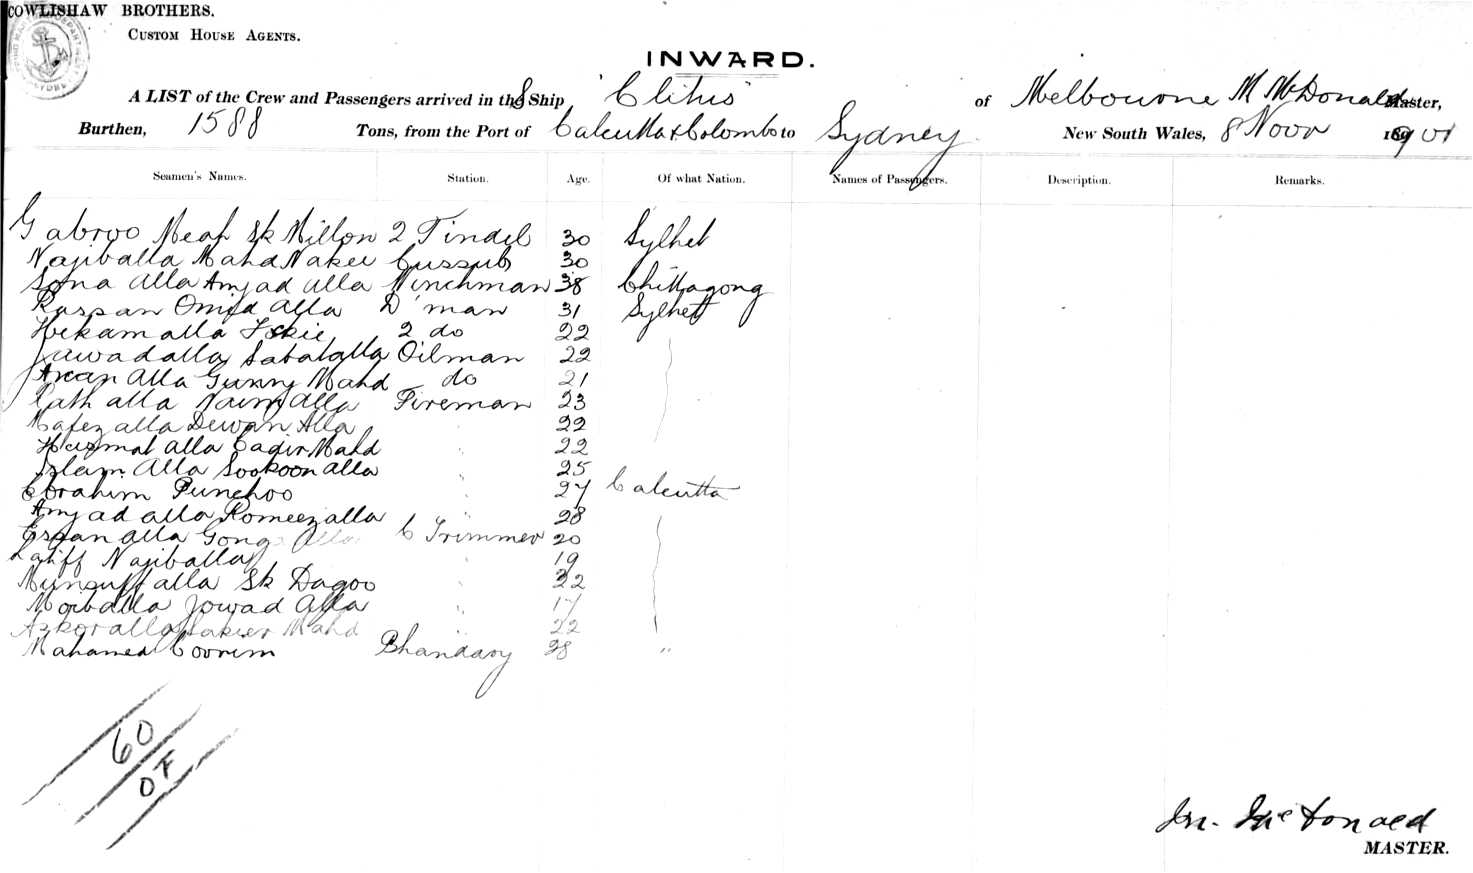 COWLISHAW BROTHERS.
CUSTOM HOUSE AGENTS.
INWARD.
A LIST of the Crew and Passengers arrived in the S Ship "Clitus" of Melbourne M McDonald Master,
Burthen, 1588 Tons, from the Port of Calcutta & Colombo to Sydney New South Wales, 8 Novr 1901
Seamen's Names. Station. Age. Of what Nation. Names of Passengers. Description. Remarks.
Gabroo Meah Sk Millon 2 Tindel 30 Sylhet
Najiballa Mahd Nakee Cussub 30
Sona Alla Amjad Alla Winchman 38 Chittagong
Russan Omed Alla D'man 31 Sylhet
Hekamalla 2 do 22
Jawadalla Sabatalla Oilman 22
Alla Gunny Mahd do 21
alla Naim Alla Fireman 23
Mafez alla Dewan Alla " 22
Hazmat alla Cadir Mahd " 22
Islam Alla Sookoon alla " 25
Ebrahim Punchoo " 27 Calcutta
Amjad alla Romeez alla " 28
Alla Gong Alla C Trimmer 20
Latiff Najiballa " 19
Munsuff alla Sk Dagoo " 22
Moiballa Jowad Alla " 17
Azkoralla Sakier Mahd " 22
Mahamed Covrim Bhandary 28 "
60
OF
M. McDonald
MASTER.